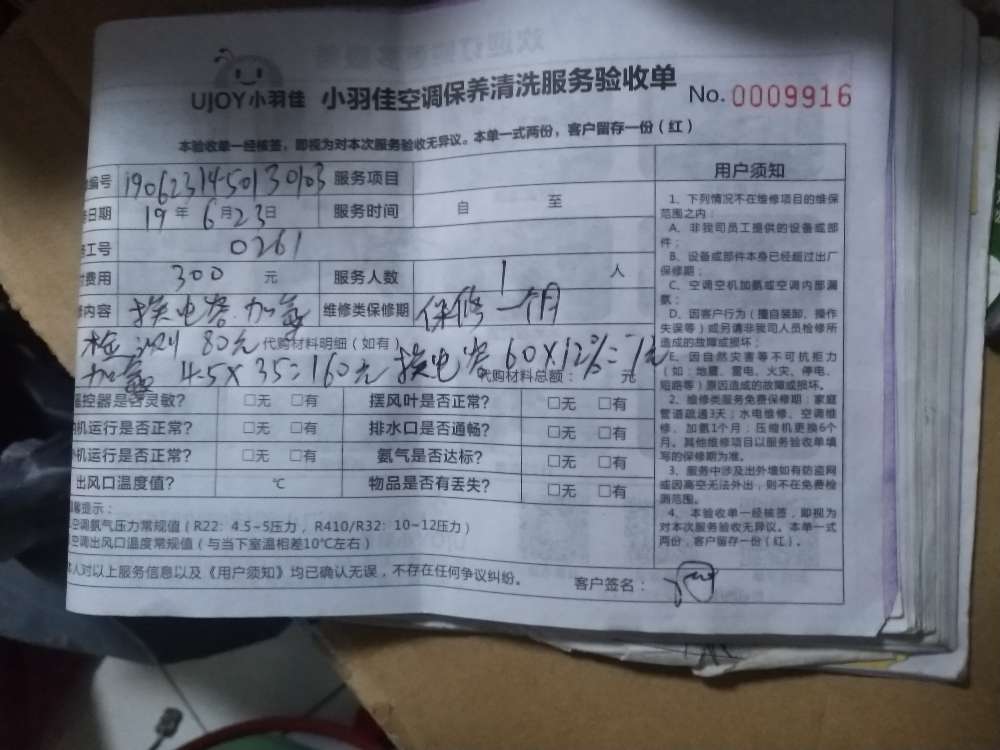 UJOY小羽佳 小羽佳空调保养清洗服务验收单 No. 0009916
本验收单一经核签，即视为对本次服务验收无异议。本单一式两份，客户留存一份（红）
编号 190623145013 0103 服务项目
日期 19年6月23日 服务时间 自 至
工号 0261
费用 300 元 服务人数 1 人
内容 换电容.加氨 维修类保修期 保修一个月
检测 80元 代购材料明细（如有）
加氨 4.5×35=160元 换电容 60×12%=
代购材料总额： 元
遥控器是否灵敏？ □无 □有 摆风叶是否正常？ □无 □有
机运行是否正常？ □无 □有 排水口是否通畅？ □无 □有
机运行是否正常？ □无 □有 氨气是否达标？ □无 □有
出风口温度值？ ℃ 物品是否有丢失？ □无 □有
提示：
空调氨气压力常规值（R22：4.5~5压力，R410/R32：10~12压力）
空调出风口温度常规值（与当下室温相差10℃左右）
本人对以上服务信息以及《用户须知》均已确认无误，不存在任何争议纠纷。 客户签名：
用户须知
1、下列情况不在维修项目的维保
范围之内：
A、非我司员工提供的设备或部
件；
B、设备或部件本身已经超过出厂
保修期；
C、空调空机加氨或空调内部漏
氨；
D、因客户行为（擅自装卸、操作
失误等）或另请非我司人员检修所
造成的故障或损坏；
E、因自然灾害等不可抗拒力
（如：地震、雷电、火灾、停电、
短路等）原因造成的故障或损坏。
2、维修类服务免费保修期：家庭
管道疏通3天；水电维修、空调维
修、加氨1个月；压缩机更换6个
月。其他维修项目以服务验收单填
写的保修期为准。
3、服务中涉及出外墙如有防盗网
或因高空无法外出，则不在免费检
测范围。
4、本验收单一经核签，即视为
对本次服务验收无异议。本单一式
两份，客户留存一份（红）。